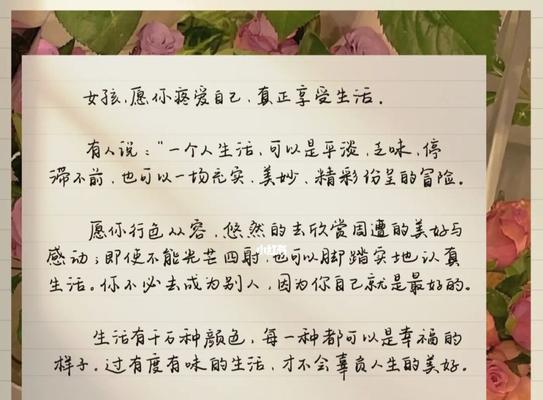 女孩，愿你疼爱自己，真正享受生活。
有人说："一个人生活，可以是平淡，乏味，停
滞不前，也可以一场充实、美妙、精彩纷呈的冒险。
愿你行色从容，悠然的去欣赏周遭的美好与
感动；即使不能光芒四射，也可以脚踏实地认真
小红书
生活。你不必去成为别人，因为你自己就是最好的。
生活有千万种颜色，每一种都可以是幸福的
样子。过有度有味的生活，才不会辜负人生的美好。